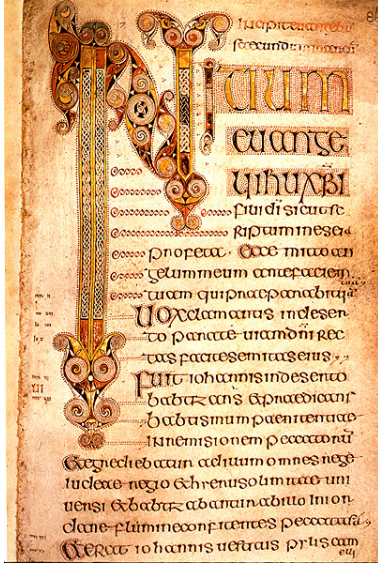 INITIUM
euange
lii ihu xpi
filii di sicut sc
riptum in esaia
profeta · Ecce mitto an
gelum meum ante faciem
tuam qui praeparabit uia
Uox clamantis in deser
to parate uiam dni rec
tas facite semitas eius
Fuit iohannis in deserto
babtizans et praedicans
babtismum paenitentiae
in remisionem peccatoru
Et egrediebatur ad illum omnes
iudeae regio et hyerusolimitae uni
uersi et babtizabantur ab illo in ior
dane flumine confitentes peccata sua
Et erat iohannis uestitus pylis cam